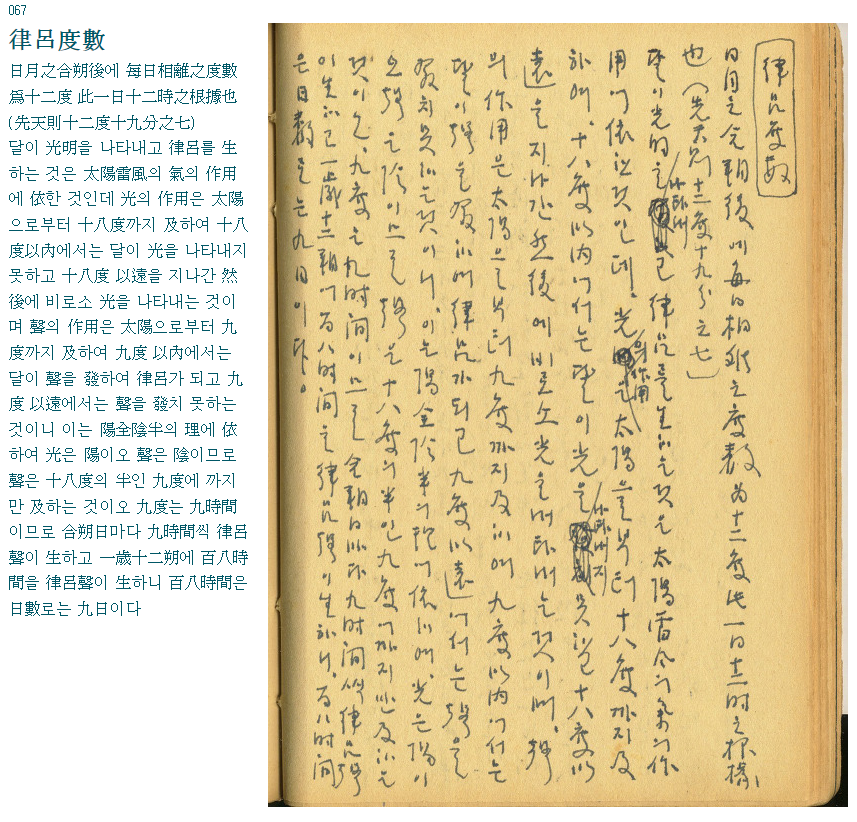 067
律呂度數
日月之合朔後에 每日相離之度數
爲十二度 此一日十二時之根據也
(先天則十二度十九分之七)
달이 光明을 나타내고 律呂를 生
하는 것은 太陽雷風의 氣의 作用
에 依한 것인데 光의 作用은 太陽
으로부터 十八度까지 及하여 十八
度以內에서는 달이 光을 나타내지
못하고 十八度 以遠을 지나간 然
後에 비로소 光을 나타내는 것이
며 聲의 作用은 太陽으로부터 九
度까지 及하여 九度 以內에서는
달이 聲을 發하여 律呂가 되고 九
度 以遠에서는 聲을 發치 못하는
것이니 이는 陽全陰半의 理에 依
하여 光은 陽이오 聲은 陰이므로
聲은 十八度의 半인 九度에 까지
만 及하는 것이오 九度는 九時間
이므로 合朔日마다 九時間씩 律呂
聲이 生하고 一歲十二朔에 百八時
間을 律呂聲이 生하니 百八時間은
日數로는 九日이다
律呂度數
日月之合朔後에 每日相離之度數 爲十二度 此一日十二時之根據
也 (先天則 十二度十九分之七)
달이 光明을 나타내고 律呂를 生하는 것은 太陽雷風의 氣의 作
用에 依한 것인데, 光의 作用은 太陽으로부터 十八度까지 及
하여, 十八度以內에서는 달이 光을 나타내지 못하고 十八度以
遠을 지나간 然後에 비로소 光을 나타내는 것이며, 聲
의 作用은 太陽으로부터 九度까지 及하여 九度以內에서는
달이 聲을 發하여 律呂가 되고 九度以遠에서는 聲을
發치 못하는 것이니, 이는 陽全陰半의 理에 依하여, 光은 陽이
오 聲은 陰이므로 聲은 十八度의 半인 九度에까지만 及하는
것이오, 九度는 九时间이므로 合朔日마다 九时间씩 律呂聲
이 生하고 一歲十二朔에 百八时间을 律呂聲이 生하니, 百八时间
은 日數로는 九日이다。